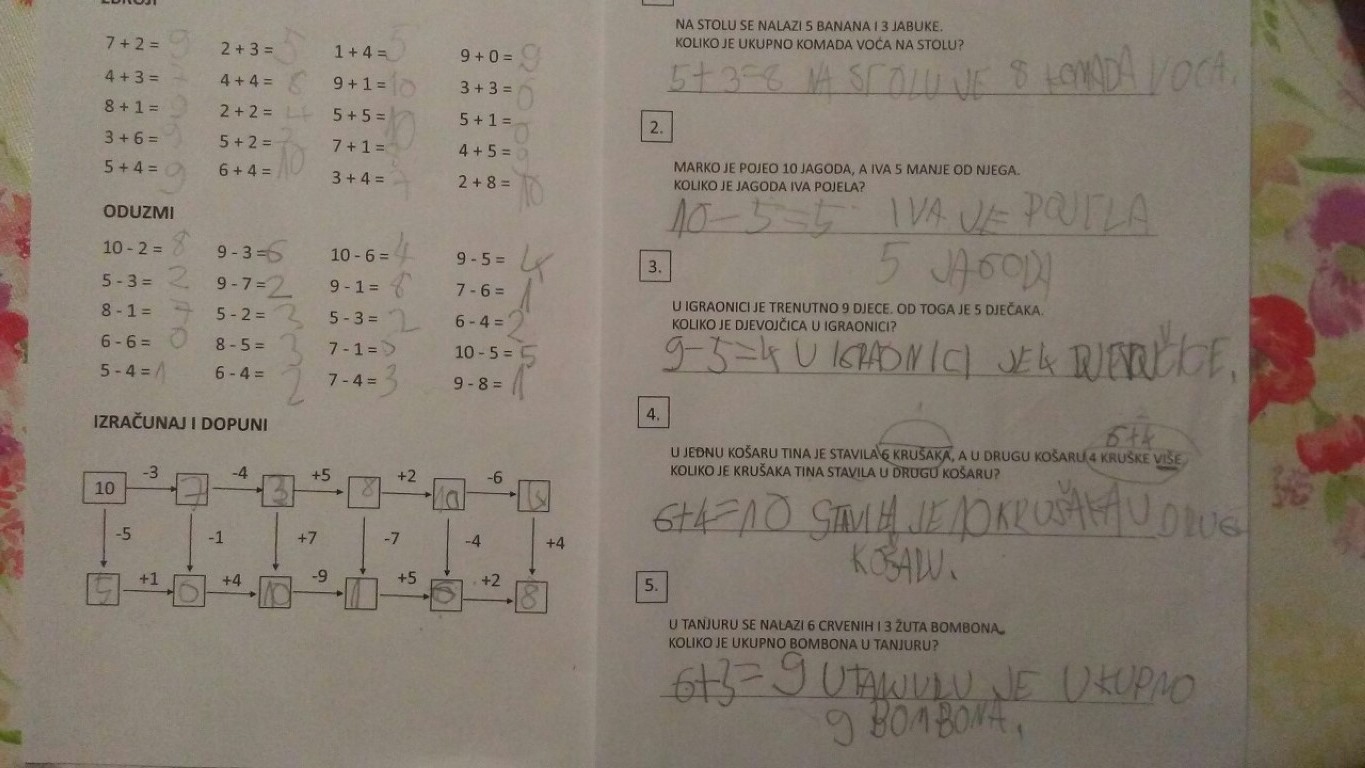 ZBROJI
7 + 2 = 9 2 + 3 = 5 1 + 4 = 5 9 + 0 = 9
4 + 3 = 7 4 + 4 = 8 9 + 1 = 10 3 + 3 = 6
8 + 1 = 9 2 + 2 = 4 5 + 5 = 10 5 + 1 = 6
3 + 6 = 9 5 + 2 = 7 7 + 1 = 4 + 5 = 9
5 + 4 = 9 6 + 4 = 10 3 + 4 = 7 2 + 8 = 10
ODUZMI
10 - 2 = 8 9 - 3 = 6 10 - 6 = 4 9 - 5 = 4
5 - 3 = 2 9 - 7 = 2 9 - 1 = 8 7 - 6 = 1
8 - 1 = 7 5 - 2 = 3 5 - 3 = 2 6 - 4 = 2
6 - 6 = 0 8 - 5 = 3 7 - 1 = 10 - 5 = 5
5 - 4 = 1 6 - 4 = 2 7 - 4 = 3 9 - 8 = 1
IZRAČUNAJ I DOPUNI
10 -3 7 -4 3 +5 8 +2 10 -6 4
-5 -1 +7 -7 -4 +4
5 +1 6 +4 10 -9 1 +5 6 +2 8
NA STOLU SE NALAZI 5 BANANA I 3 JABUKE.
KOLIKO JE UKUPNO KOMADA VOĆA NA STOLU?
5+3=8 NA STOLU JE 8 KOMADA VOĆA.
2.
MARKO JE POJEO 10 JAGODA, A IVA 5 MANJE OD NJEGA.
KOLIKO JE JAGODA IVA POJELA?
10-5=5 IVA JE POJELA
5 JAGODA
3.
U IGRAONICI JE TRENUTNO 9 DJECE. OD TOGA JE 5 DJEČAKA.
KOLIKO JE DJEVOJČICA U IGRAONICI?
9-5=4 U IGRAONICI JE 4
4.
6+4
U JEDNU KOŠARU TINA JE STAVILA 6 KRUŠAKA, A U DRUGU KOŠARU 4 KRUŠKE VIŠE.
KOLIKO JE KRUŠAKA TINA STAVILA U DRUGU KOŠARU?
6+4=10 STAVILA JE 10 KRUŠAKA U
KOŠARU.
5.
U TANJURU SE NALAZI 6 CRVENIH I 3 ŽUTA BOMBONA.
KOLIKO JE UKUPNO BOMBONA U TANJURU?
6+3=9 U TANJURU JE UKUPNO
9 BOMBONA.